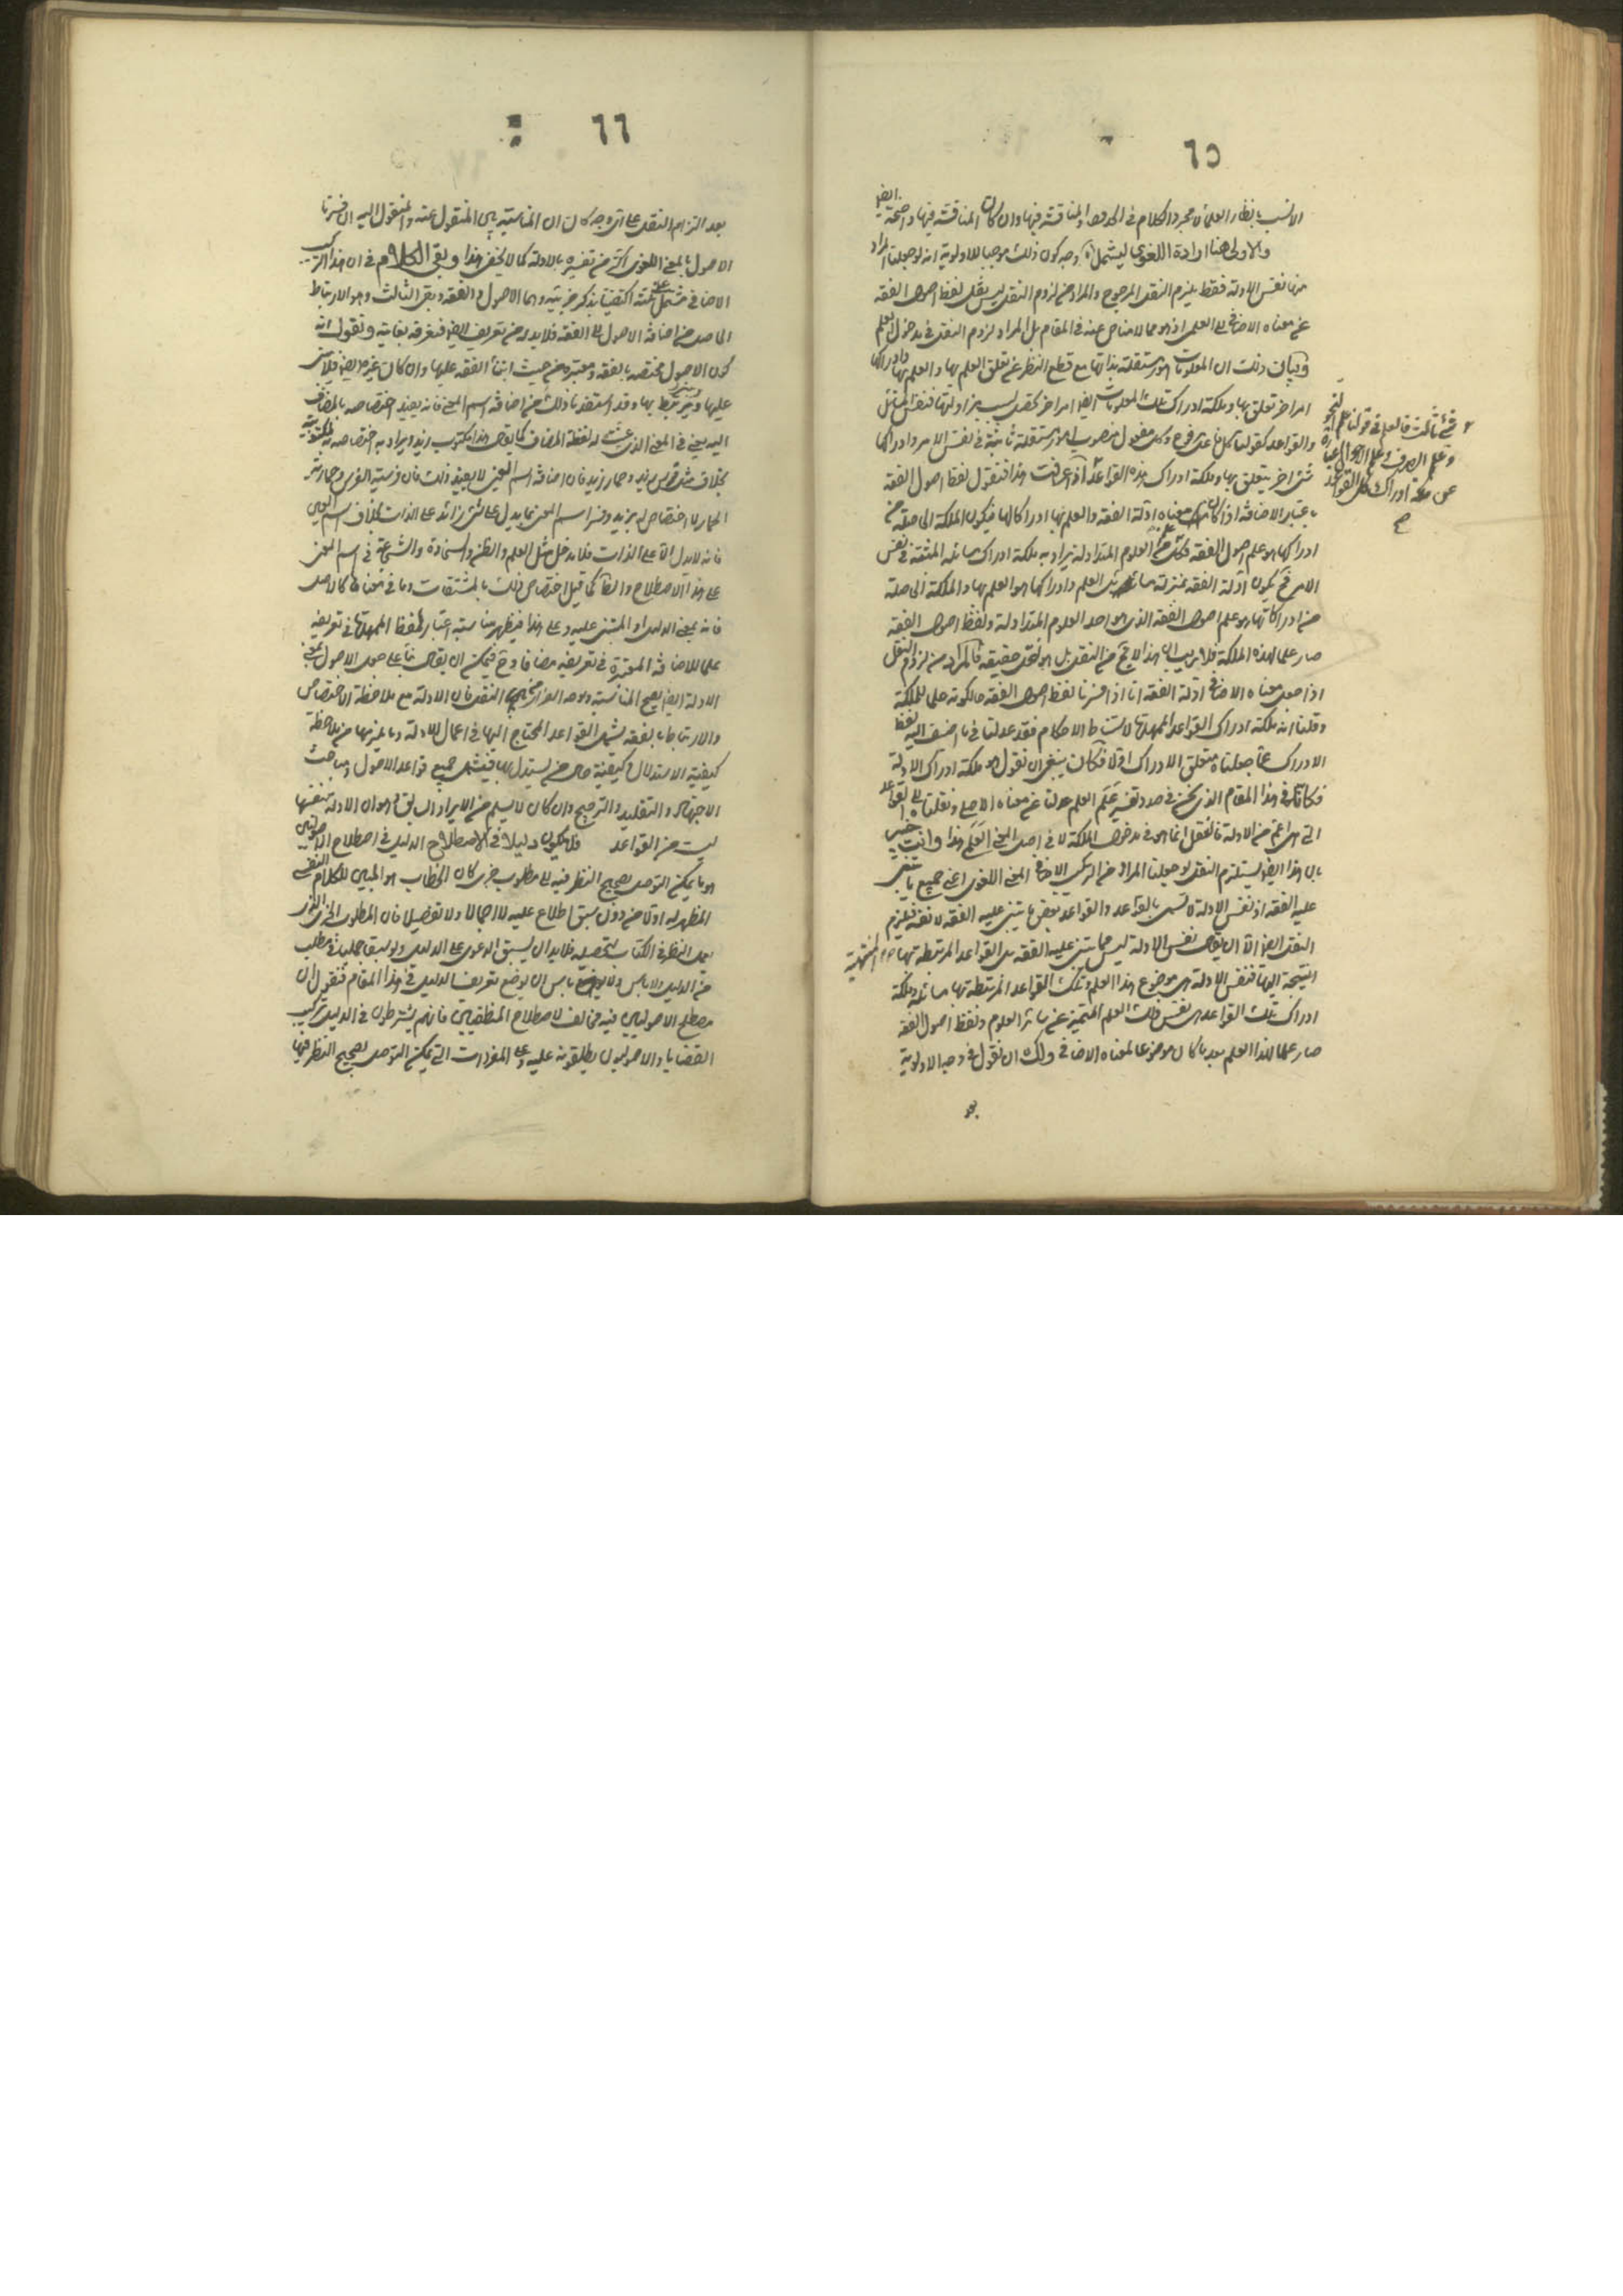 ٦٥
الانسب بانظار العلماء مجرد الكلام في الحدود والمناقشة فيها وان كان المناقشة فيها واضحة ايضا
والاولى هنا ارادة اللغوي ليشمل آه وجه كون ذلك موجبا للاولوية انه لو جعلنا المراد
منها نفس الادلة فقط يلزم النقل المرجوح والمراد من لزوم النقل ليس نقل لفظ اصول الفقه
عن معناه الاضافي الى العلمي اذ هو مما لا مناص عنه في المقام بل المراد لزوم النقل في مدخول العلم
وبيان ذلك ان المعلومات امور مستقلة بذاتها مع قطع النظر عن تعلق العلم بها والعلم بها وادراكها
امر اخر تعلق بها وملكة ادراك تلك المعلومات ايضا امر اخر يحصل بسبب مزاولتها فنفس المسائل
والقواعد كقولنا كل فاعل مرفوع وكل مفعول منصوب امور مستقلة ثابتة في نفس الامر وادراكها
شئ اخر يتعلق بها وملكة ادراك هذه القواعد اذا عرفت هذا فنقول لفظ اصول الفقه
باعتبار الاضافة اذا كان معناه ادلة الفقه والعلم بها ادراكا لها فيكون الملكة الحاصلة من
ادراكها هو علم اصول الفقه فكل علم من العلوم المتداولة يراد به ملكة ادراك مسائله المثبتة في نفس
الامر فح يكون ادلة الفقه بمنزلة مسائل العلم وادراكها هو العلم بها والملكة الحاصلة
من ادراكاتها هو علم اصول الفقه الذي هو احد العلوم المتداولة ولفظ اصول الفقه
صار علما لهذه الملكة فلا ريب ان هذا لا يخ من النقل بل هو نقل حقيقة فالمراد من لزوم النقل
اذا جعل معناه الاضافي ادلة الفقه انا اذا فسرنا لفظ اصول الفقه حالكونه علما للملكة
وقلنا انه ملكة ادراك القواعد الممهدة لاستنباط الاحكام فقد عدلنا في ما اضيف اليه لفظ
الادراك عما جعلناه متعلق الادراك اولا فكان ينبغي ان نقول هو ملكة ادراك الادلة
فكانا في هذا المقام الذي نحن في صدد تفسير علم العلم عدلنا عن معناه الاصلي ونقلنا الى القواعد
التي هي اعم من الادلة فالنقل انما هو في مدخول الملكة لا في اصل المعنى العلم هذا وانت خبير
بان هذا ايضا يستلزم النقل لو جعلنا المراد من المركب الاضافي المعنى اللغوي اعني جميع ما يبتني
عليه الفقه اذ نفس الادلة لا تسمى بالقواعد والقواعد بعض ما يبتني عليه الفقه لا نفسه فيلزم
النقل ايضا الا ان يقال نفس الادلة ليس مما يبتني عليه الفقه بل القواعد المرتبطة بها هو المنتهية
النتيجة اليها فنفس الادلة هي موضوع هذا العلم وتلك القواعد المرتبطة بها مسائله وملكة
ادراك تلك القواعد هي نفس ذلك العلم المتميز عن سائر العلوم ولفظ اصول الفقه
صار علما لهذا العلم بعد ما كان موضوعا لمعناه الاضافي ولك ان نقول في وجه الاولوية
بعد
شئ ثالث فالعلم في قولنا علم النحو
وعلم الصرف وعلم الاصول عبارة
عن ملكة ادراك تلك القواعد
٦٦
بعد التزام النقل على اي وجه كان ان المناسبة بين المنقول عنه والمنقول اليه ان فسرنا
الاصول بالمعنى اللغوي اكثر من تفسيره بالادلة كما لا يخفى هذا وبقي الكلام في ان هذا المركب
الاضافي مشتمل على ثلثة اكتفينا بذكر جزئيه وهما الاصول والفقه وبقي الثالث وهو الارتباط
الحاصل من اضافة الاصول الى الفقه فلابد له من تعريف ايضا فنعرفه بغايته ونقول انه
كون الاصول مختصة بالفقه ومعتبرة من حيث ابتناء الفقه عليها وان كان غيره ايضا يبتنى
عليها ويرتبط بها وقد استفدنا ذلك من اضافة اسم المعنى فانه يفيد اختصاصه بالمضاف
اليه يعني في المعنى الذي عينت له لفظة المضاف كما يقال هذا مكتوب زيد ويراد به اختصاصه بمكتوبيته
بخلاف مثل فرس زيد وحمار زيد فان اضافة اسم العين لا يفيد ذلك فان فرسية الفرس وحمارية
الحمار لا اختصاص له بزيد وفسر اسم المعنى بما يدل على شئ زائد على الذات بخلاف اسم العين
فانه لا يدل الا على الذات فلا يدخل مثل العلم والظن والسخاوة والشجاعة في اسم المعنى
على هذا الاصطلاح والظ كما قيل اختصاص ذلك بالمشتقات وما في معناها كالاصل
فانه بمعنى الدليل او المبتنى عليه وعلى هذا فيظهر مناسبة اعتبار لفظ الممهدة في تعريفه
علما للاضافة المعتبرة في تعريفه مضافا وح فيمكن ان يقال بناء على حمل الاصول بمعنى
الادلة ايضا يصح المناسبة ولا حصل الفرار من النقل فان الادلة مع ملاحظة الاختصاص
والارتباط بالفقه يشمل القواعد المحتاج اليها في اعمال الادلة وما يلزمها من ملاحظة
كيفية الاستدلال وكيفية حال من يستدل بها فيشمل جميع قواعد الاصول ومباحث
الاجتهاد والتقليد والترجيح وان كان لا يسلم من الايراد السابق وهو ان الادلة نفسها
ليست من القواعد فلا يكون دليلا في الاصطلاح الدليل في اصطلاح الاصوليين
هو ما يمكن التوصل بصحيح النظر فيه الى مطلوب خبري كان الخطاب هو المبين للكلام النفسي
المظهر له اولا من دون سبق اطلاع عليه لا اجمالا ولا تفصيلا فان المطلوب الخبري المذكور
بعد النظر في الكتاب لتحصيله فلابد ان يسبق الدعوى على الدليل ولو سبقا جمليا في مطلب
من الدليل ولا باس ان يوضع تعريف الدليل في هذا المقام فنقول ان
مصطلح الاصوليين فيه مخالف لاصطلاح المنطقيين فانهم يشترطون في الدليل تركيب
القضايا والاصوليون يطلقونه عليه وعلى المفردات التي يمكن التوصل بصحيح النظر فيها